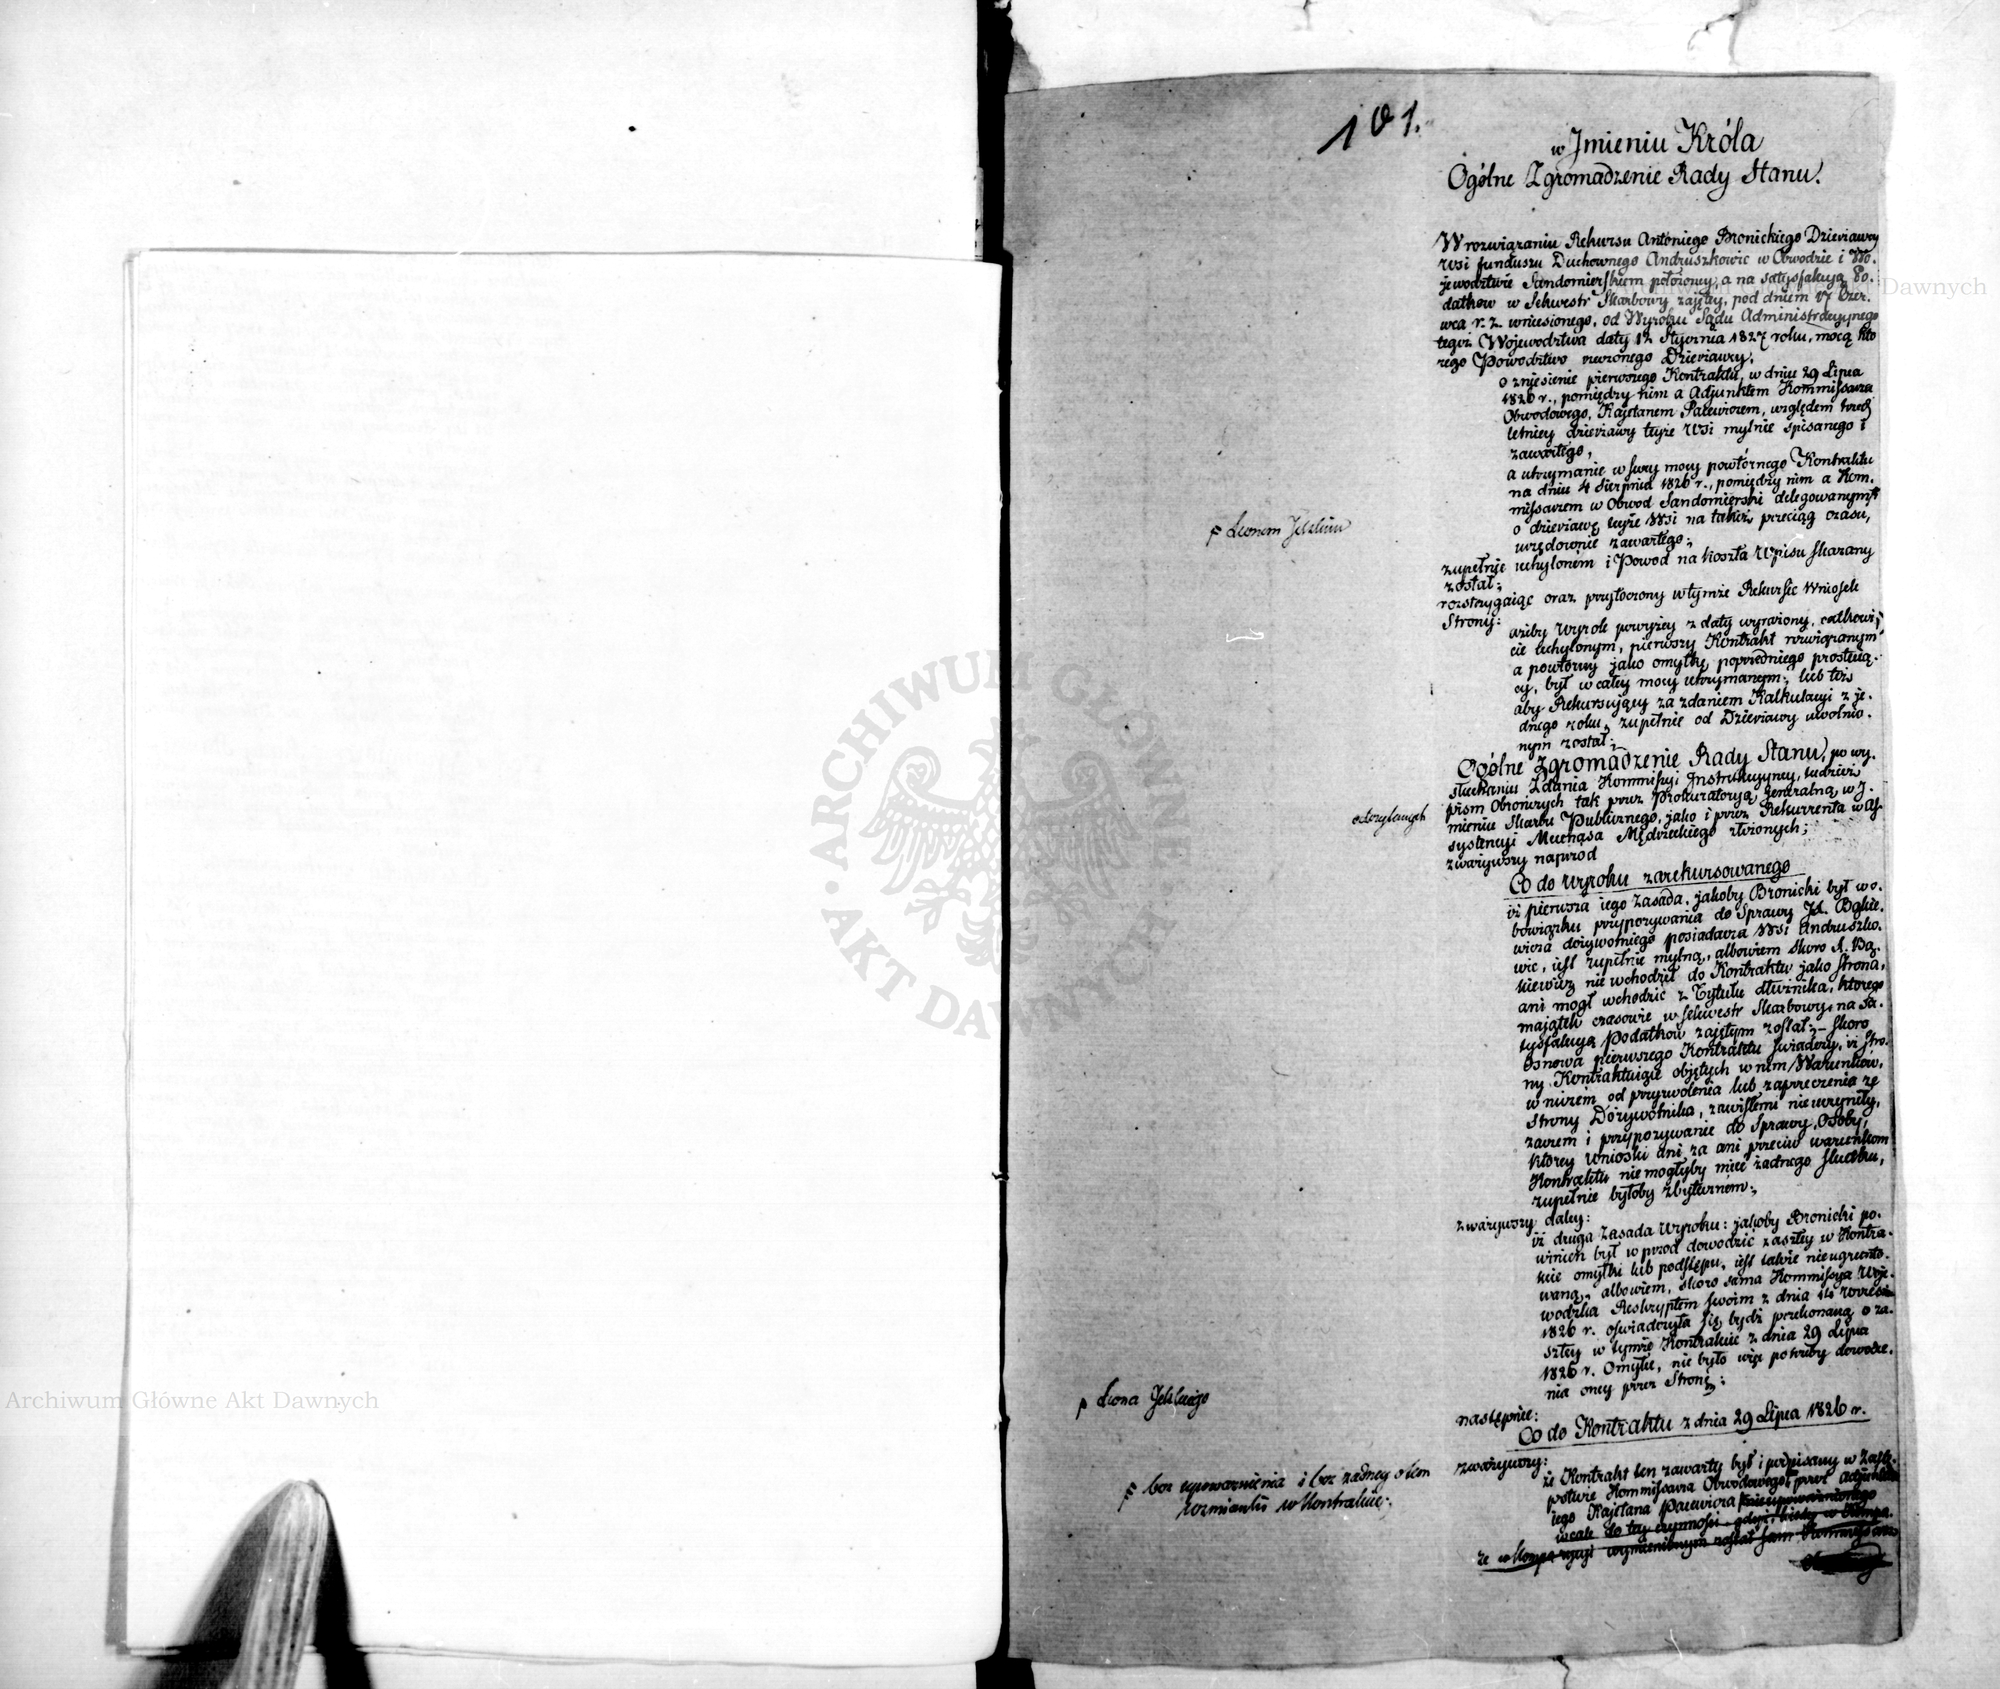 101.
w Jmieniu Króla
Ogólne Zgromadzenie Rady Stanu.
W rozwiązaniu Rekursu Antoniego Bronickiego Dzierżawcy
Wsi funduszu Duchownego Andruszkowic w Obwodzie i Wo-
jewodztwie Sandomierskiem położoney, a na satysfakcyą Po-
datkow w Sekwestr Skarbowy zajętey, pod dniem 17 Czer-
wca r. z. wniesionego, od Wyroku Sądu Administracyynego
tegoż Województwa daty 12 Stycznia 1827 roku, mocą któ-
rego Powodztwo rzeczonego Dzierżawcy,
o zniesienie pierwszego Kontraktu, w dniu 29 Lipca
1826 r., pomiędzy nim a Adjunktem Kommissarza
Obwodowego, Kajetanem Palewiczem, względem trzech
letniey dzierżawy teyże Wsi mylnie spisanego i
zawartego,
a utrzymanie w swey mocy powtórnego Kontraktu
na dniu 4 Sierpnia 1826 r., pomiędzy nim a Kom-
missarzem w Obwod Sandomierski delegowanym
ƒ Leonem Jelskim
o dzierżawę teyże Wsi na takiż przeciąg czasu,
urzędownie zawartego;
zupełnie uchylonem i Powod na koszta Wpisu skazany
został;
rozstrzygaiąc oraz przytoczony w tymże Rekursie Wniosek
Strony:
ażeby Wyrok powyżey z daty wyrażony, całkowi-
cie uchylonym, pierwszy Kontrakt rozwiązanym
a powtórny jako omyłkę poprzedniego prostują-
cy, był w całey mocy utrzymanym; lub też
aby Rekursujący za zdaniem Kalkulacyi z je-
dnego roku, zupełnie od Dzierżawy uwolnio-
nym został;
Ogólne Zgromadzenie Rady Stanu, po wy-
słuchaniu Zdania Kommissyi Instrukcyyney, tudzież
pism Obrończych tak przez Prokuratoryą Jeneralną w J-
mieniu Skarbu Publicznego, jako i przez Rekurrenta w as-
systencyi Mecenasa Mędrzeckiego złożonych;
zważywszy naprzod
Co do Wyroku zarekursowanego
iż pierwsza iego zasada, jakoby Bronicki był w o-
bowiązku przypozywania do Sprawy
wicza dożywotniego posiadacza Wsi Andruszko-
wic, iest zupełnie mylną, albowiem skoro
kiewicz nie wchodził do Kontraktu jako Strona,
ani mogł wchodzić z Tytułu dłużnika, ktorego
majątek czasowie w Sekwestr Skarbowy na sa-
tysfakcyą Podatkow zajętym został; – skoro
Osnowa pierwszego Kontraktu świadczy, iż Stro-
ny Kontraktuiące objętych w nim Warunków,
w niczem od przyzwolenia lub zaprzeczenia ze
Strony Dożywotnika, zawisłemi nie uczyniły,
zatem i przypozywanie do Sprawy, Osoby,
ktorey Wnioski ani za ani przeciw warunkom
Kontraktu nie mogłyby mieć żadnego skutku,
zupełnie byłoby zbytecznem;
zważywszy daley:
iż druga zasada Wyroku: jakoby Bronicki po-
winien był w przod dowodzić zaszłey w Kontra-
kcie omyłki lub podstępu, iest także nieugrunto-
waną, albowiem, skoro sama Kommissya Woje-
wodzka Reskryptem swoim z dnia 14 Września
1826 r. oświadczyła się bydź przekonaną o za-
szłey w tymże Kontrakcie z dnia 29 Lipca
1826 r. Omyłce, nie było więc potrzeby dowodze-
nia oney przez Stronę;
następnie:
Co do Kontraktu z dnia 29 Lipca 1826 r.
zważywszy:
że Kontrakt ten zawarty był i podpisany w zastę-
pstwie Kommissarza Obwodowego przez Adjunkta
iego Kajetana Palewicza nieupoważnionego
wcale do tey czynności, gdyż kiedy w Kompa-
rycyi wymienionym został sam Kommissarz
ƒ Leona Jelskiego
ƒ bez upoważnienia i bez żadney o tem
wzmianki w Kontrakcie;
Archiwum Główne Akt Dawnych
ARCHIWUM GŁÓWNE AKT DAWNYCH